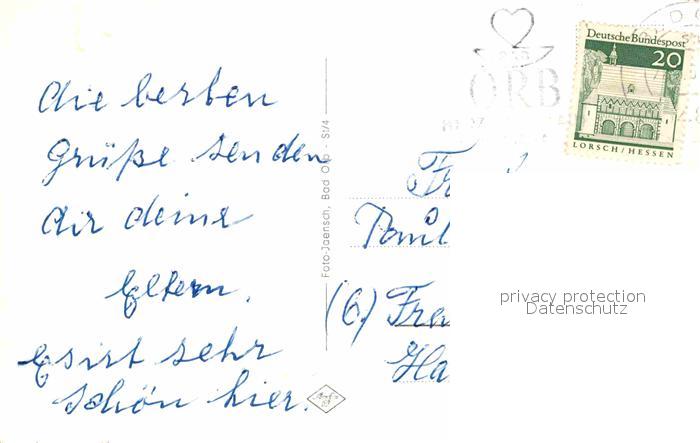 die besten
Grüße senden
dir deine
Eltern.
Es ist sehr
schön hier.
Foto-Jaensch, Bad Orb - St/4
ORB
Deutsche Bundespost
20
LORSCH/HESSEN
(6)
privacy protection
Datenschutz